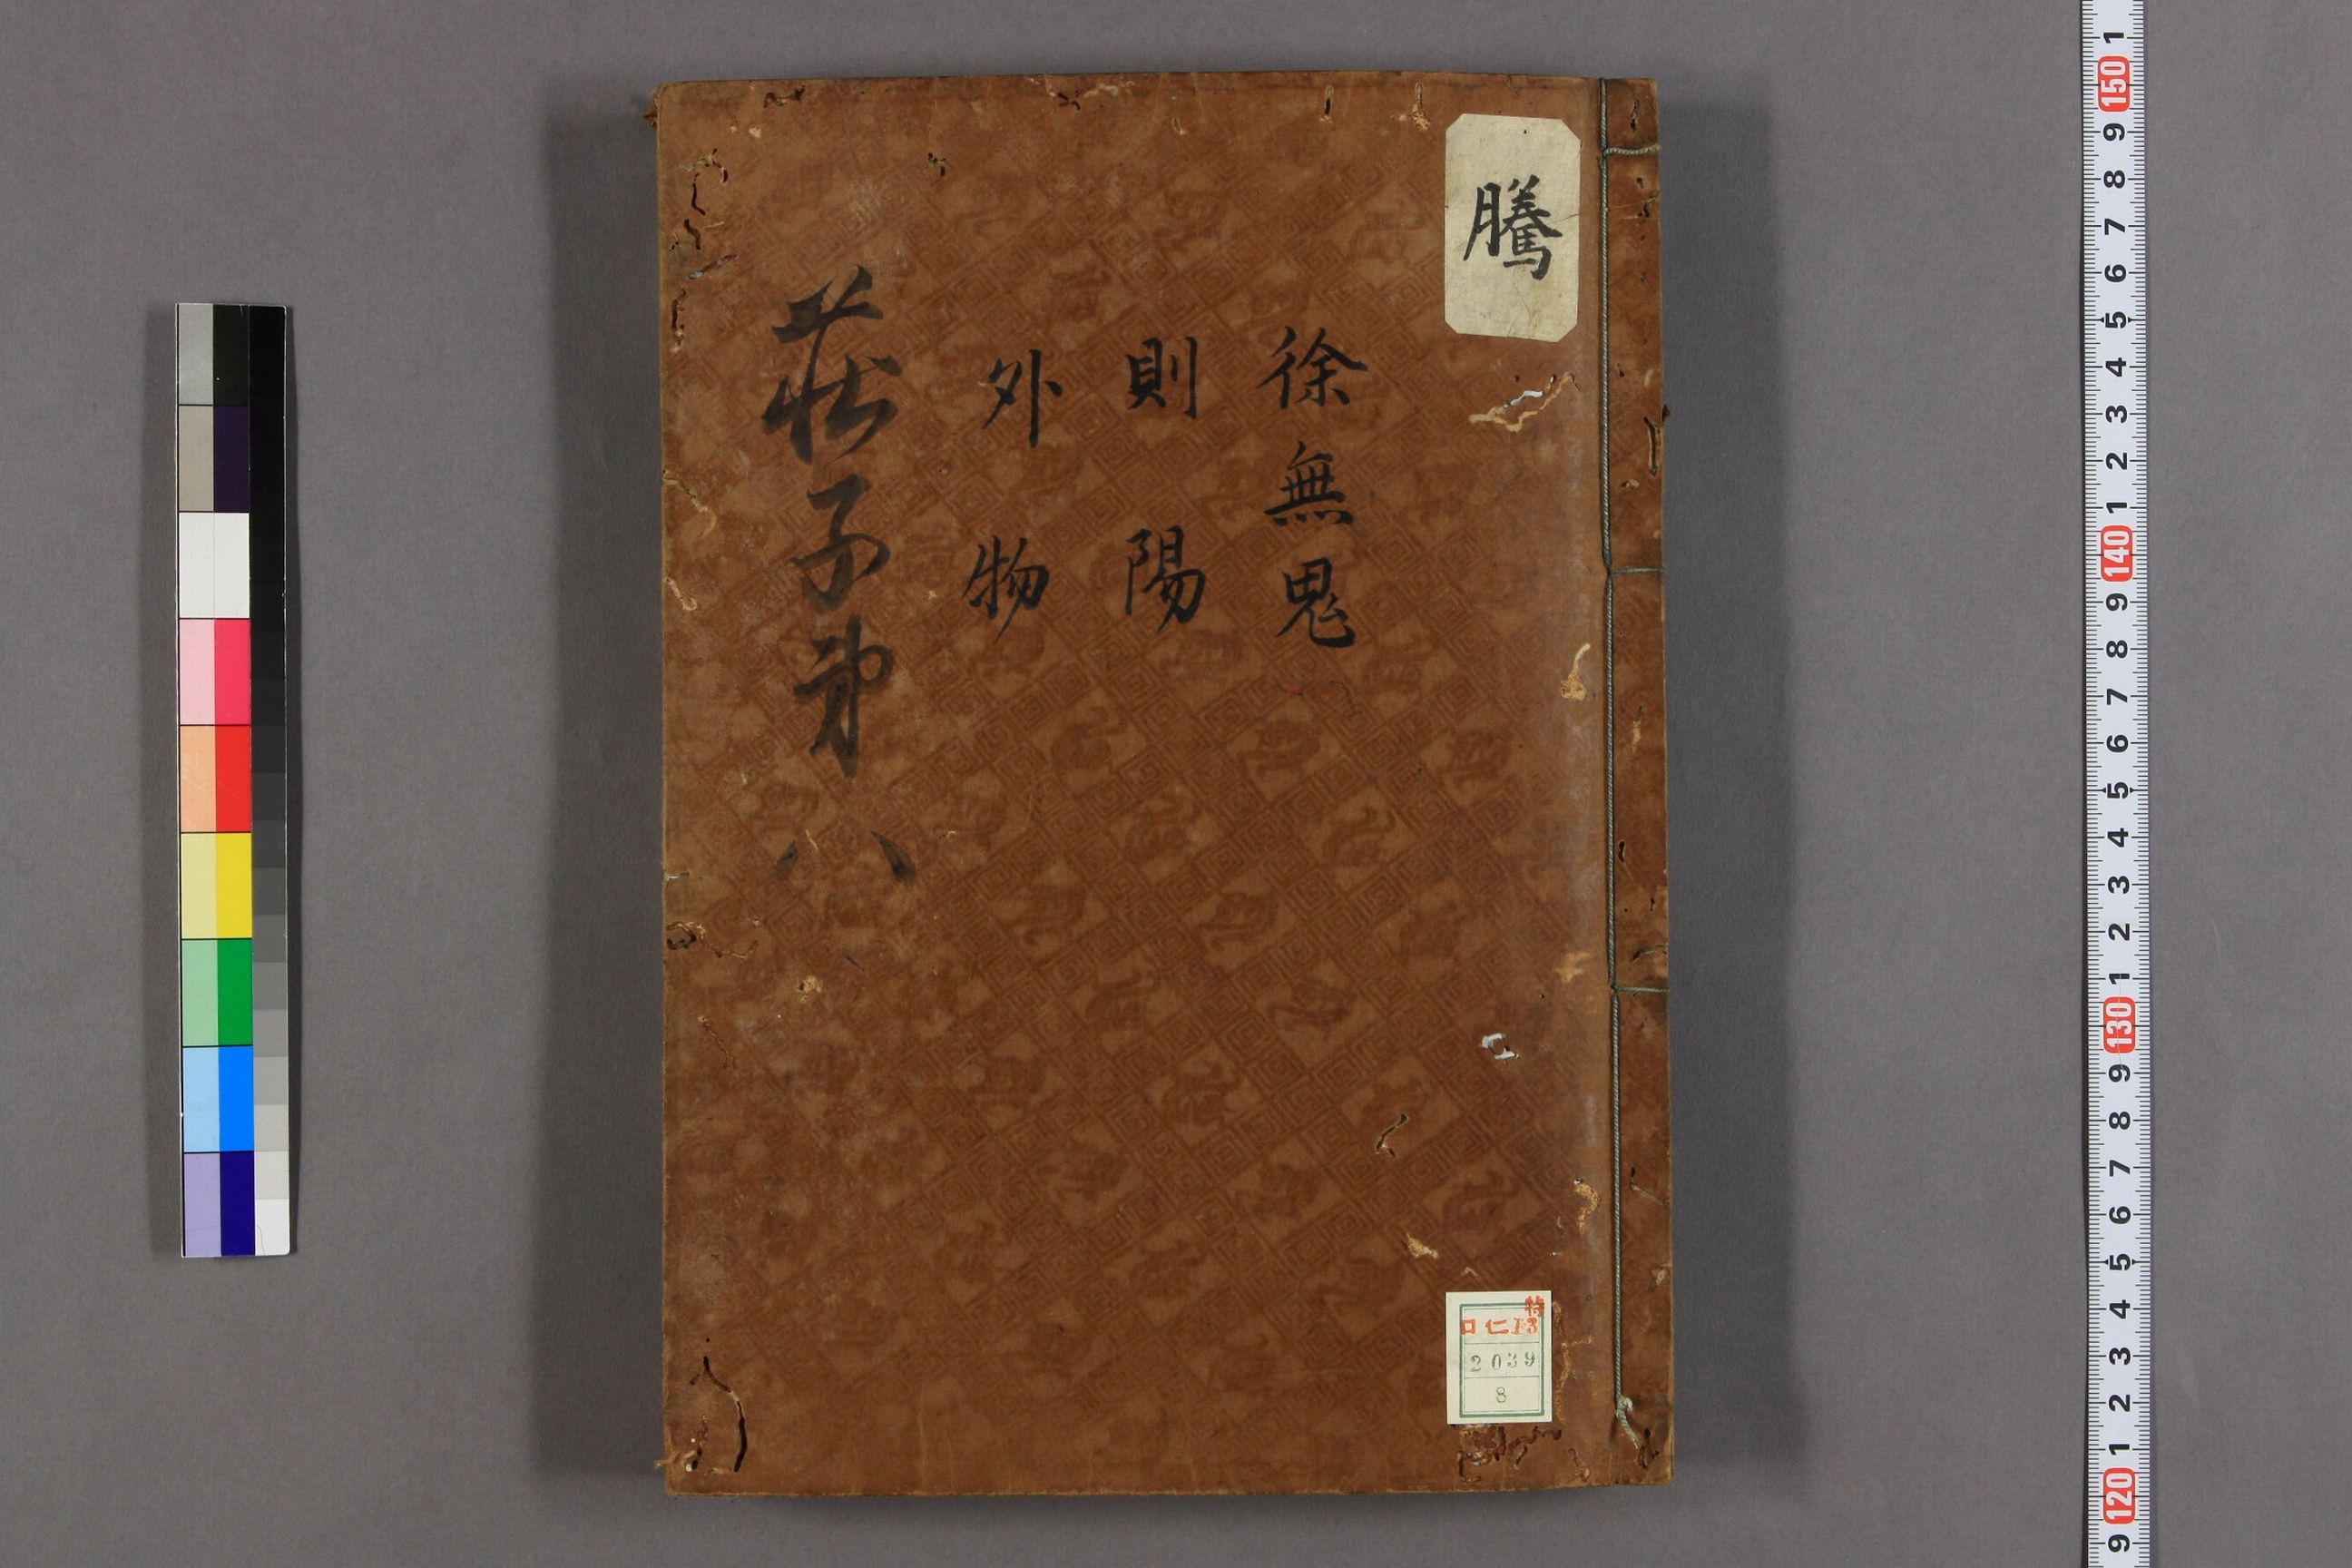 騰
徐無鬼
則陽
外物
莊子第八
特
ロ仁13
2039
8
1
150
9
8
7
6
5
4
3
2
1
140
9
8
7
6
5
4
3
2
1
130
9
8
7
6
5
4
3
2
1
120
9